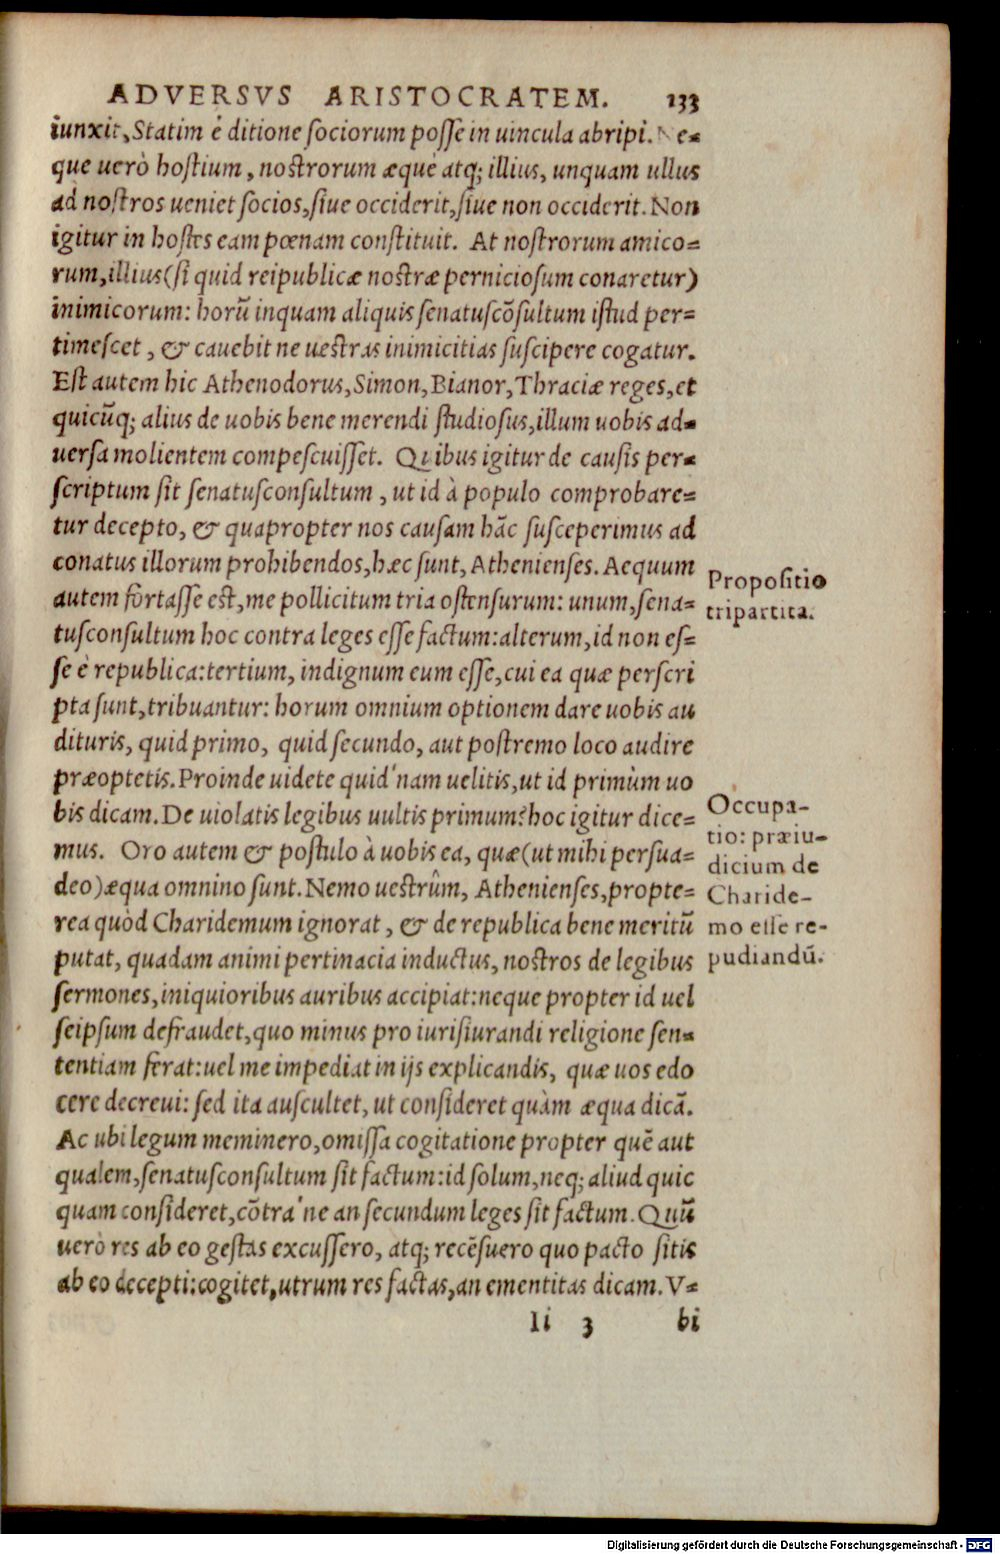 ADVERSVS ARISTOCRATEM. 133
iunxit, Statim è ditione sociorum posse in uincula abripi. Ne=
que uerò hostium, nostrorum æquè atq; illius, unquam ullus
ad nostros ueniet socios, siue occiderit, siue non occiderit. Non
igitur in hostes eam pœnam constituit. At nostrorum amico=
rum, illius (si quid reipublicæ nostræ perniciosum conaretur)
inimicorum: horũ inquam aliquis senatuscõsultum istud per=
timescet, & cauebit ne uestras inimicitias suscipere cogatur.
Est autem hic Athenodorus, Simon, Bianor, Thraciæ reges, et
quicũq; alius de uobis bene merendi studiosus, illum uobis ad=
uersa molientem compescuisset. Quibus igitur de causis per=
scriptum sit senatusconsultum, ut id à populo comprobare=
tur decepto, & quapropter nos causam hãc susceperimus ad
conatus illorum prohibendos, hæc sunt, Athenienses. Aequum
autem fortasse est, me pollicitum tria ostensurum: unum, sena=
tusconsultum hoc contra leges esse factum: alterum, id non es=
se è republica: tertium, indignum eum esse, cui ea quæ perscri
pta sunt, tribuantur: horum omnium optionem dare uobis au
dituris, quid primo, quid secundo, aut postremo loco audire
præoptetis. Proinde uidete quid'nam uelitis, ut id primùm uo
bis dicam. De uiolatis legibus uultis primum? hoc igitur dice=
mus. Oro autem & postulo à uobis ea, quæ (ut mihi persua=
deo) æqua omnino sunt. Nemo uestrûm, Athenienses, propte=
rea quòd Charidemum ignorat, & de republica bene meritũ
putat, quadam animi pertinacia inductus, nostros de legibus
sermones, iniquioribus auribus accipiat: neque propter id uel
seipsum defraudet, quo minus pro iurisiurandi religione sen=
tentiam ferat: uel me impediat in ijs explicandis, quæ uos edo
cere decreui: sed ita auscultet, ut consideret quàm æqua dicã.
Ac ubi legum meminero, omissa cogitatione propter quẽ aut
qualem, senatusconsultum sit factum: id solum, neq; aliud quic
quam consideret, cõtra'ne an secundum leges sit factum. Quũ
uerò res ab eo gestas excussero, atq; recẽsuero quo pacto sitis
ab eo decepti: cogitet, utrum res factas, an ementitas dicam. V=
Ii 3 bi
Propositio
tripartita.
Occupa-
tio: præiu-
dicium de
Charide-
mo esse re-
pudiandũ.
Digitalisierung gefördert durch die Deutsche Forschungsgemeinschaft - DFG